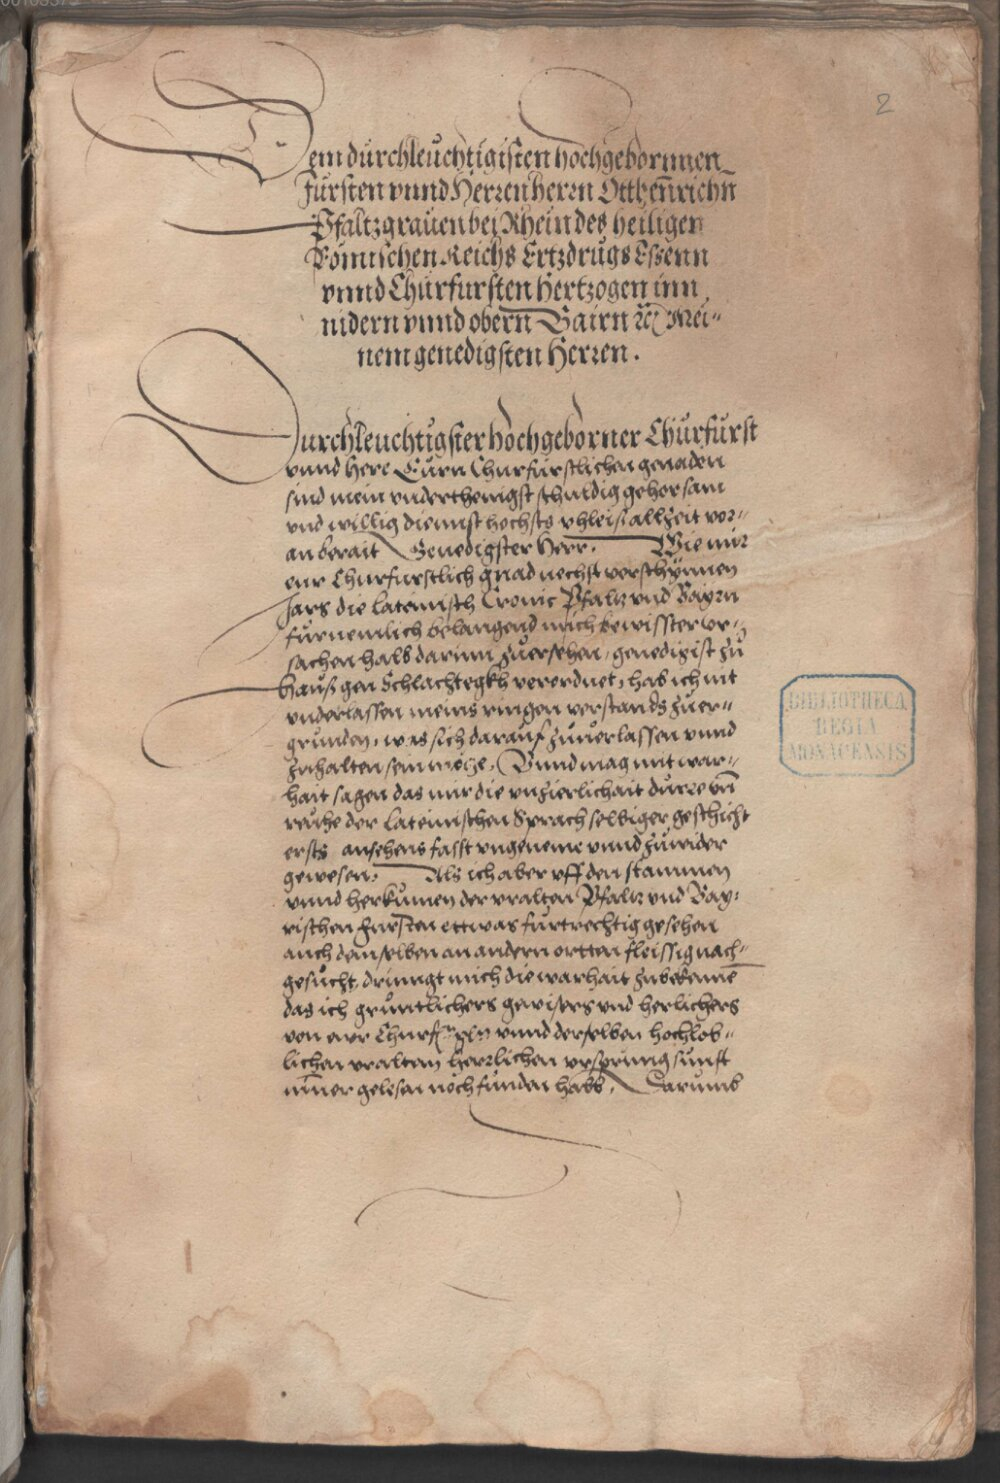 2
Dem durchleuchtigisten hochgebornnen
Fursten vnnd Herren herrn Ottheinrichn
Pfaltzgrauen bei Rhein des heiligen
Römischen Reichs Ertzdrugsessenn
vnnd Churfursten hertzogen inn
nidern vnnd obern Bairn ꝛc Mei-
nem genedigsten Herren.
Durchleuchtigster hochgeborner Churfurst
vnnd Herr Eurn Churfurstlichen genaden
sind mein vnderthenigst schuldig gehorsam
vnd willig diennst hochsts vhleiß allzeit vor-
an berait Genedigster Herr. Wie mir
eur Churfurstlich gnad nechst verschynnen
Jars die lateinisch Cronic Pfaltz vnd Bayrn
furnemlich belangend mich bewisster vr-
sachen halb darinn zuersehen, genedigist zu
hauß gen Schlachtegkh verordnet, hab ich nit
vnderlassen meins ringen verstands zuer-
grunden, was sich darauf zuuerlassen vnnd
zuhalten sein möge. Vnnd mag mit war-
hait sagen das mir die vnzierlichait durre vn̄
reuhe der lateinischen Sprach selbiger geschicht
ersts ansehens fasst vngeneme vnnd zuwider
gewesen. Als ich aber vff den stammen
vnnd herkumen der vralten Pfaltz vnd Bay-
rischen Fursten ettwas furtrechtig gesehen
auch demselben an andern orten fleissig nach-
gesucht, dringt mich die warhait zubekennē
das ich gruntlichers gewisers vnd herlichers
von eur Churf vnnd derselben hochlob-
lichen vralten herrlichen vrsprung sunst
nīmer gelesen noch funden habe. Darumb
BIBLIOTHECA
REGIA
MONACENSIS